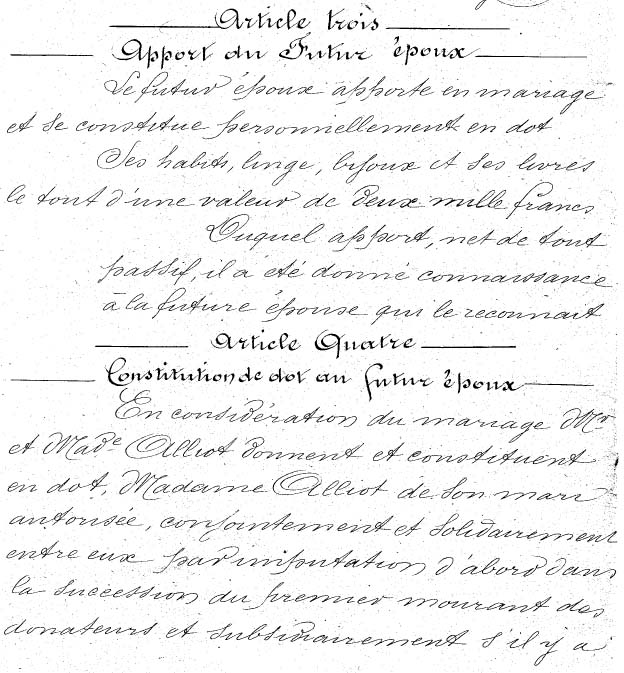 Article trois
Apport du Futur époux
Le futur époux apporte en mariage
et se constitue personnellement en dot
Ses habits, linge, bijoux et ses livres
le tout d'une valeur de deux mille francs
Duquel apport, net de tout
passif, il a été donné connaissance
à la future épouse qui le reconnait
Article Quatre
Constitution de dot au futur époux
En considération du mariage Mr
et Made Alliot donnent et constituent
en dot, Madame Alliot de son mari
autorisée, conjointement et solidairement
entre eux par imputation d'abord dans
la succession du premier mourant des
donateurs et subsidiairement s'il y a